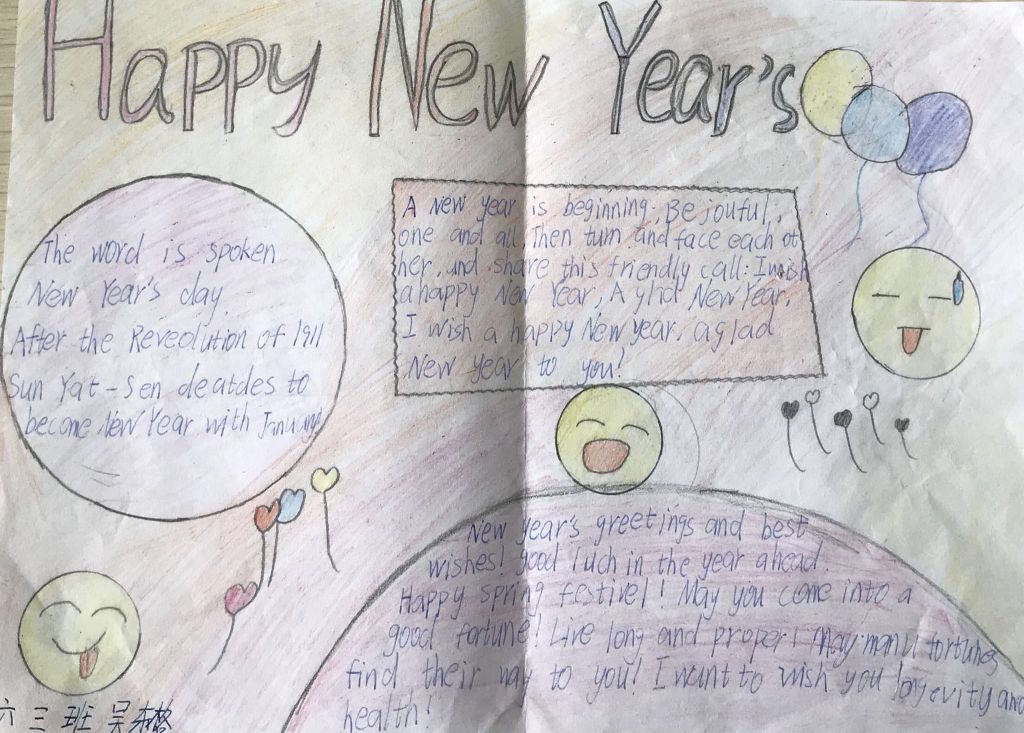 Happy New Year's
The word is spoken
New Year's day
After the Reveolution of 1911
Sun Yat-Sen deatdes to
become New Year with January
A New year is beginning. Be jouful,
one and all, Then turn and face each ot
her, and share this friendly call: I wish
a happy New Year, A glad New Year.
I wish a happy New year. a glad
New year to you!
New year's greetings and best
wishes! good luch in the year ahead.
Happy spring festivel! May you come into a
good fortune! Live long and proper! may manu fortunes
find their way to you! I want to wish you longevity and
health!
六三班 吴